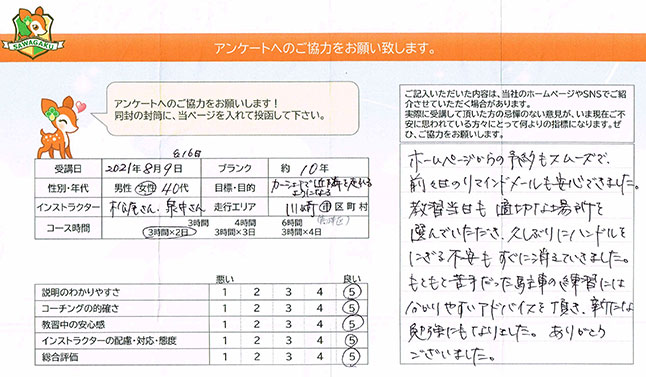 SAWAGAKU
アンケートへのご協力をお願い致します。
アンケートへのご協力をお願いします！
同封の封筒に、当ページを入れて投函して下さい。
ご記入いただいた内容は、当社のホームページやSNSでご紹介させていただく場合があります。
実際に受講して頂いた方の忌憚のない意見が、いま現在ご不安に思われている方々にとって何よりの指標になります。ぜひ、ご協力をお願いします。
8月16日
受講日 2021年8月9日 ブランク 約10年
性別・年代 男性 女性 40代 目標・目的 カーシェアで近隣を走れるようになる
インストラクター 松尾さん、泉中さん 走行エリア 川崎 市区町村
コース時間 3時間 4時間 6時間
3時間×2日 3時間×3日 3時間×4日
悪い 良い
説明のわかりやすさ 1 2 3 4 5
コーチングの的確さ 1 2 3 4 5
教習中の安心感 1 2 3 4 5
インストラクターの配慮・対応・態度 1 2 3 4 5
総合評価 1 2 3 4 5
ホームページからの予約もスムーズで、
前々日のリマインドメールも安心できました。
教習当日も適切な場所を
選んでいただき、久しぶりにハンドルを
にぎる不安もすぐに消えていきました。
もともと苦手だった駐車の練習には
分かりやすいアドバイスを頂き、新たな
勉強にもなりました。ありがとう
ございました。